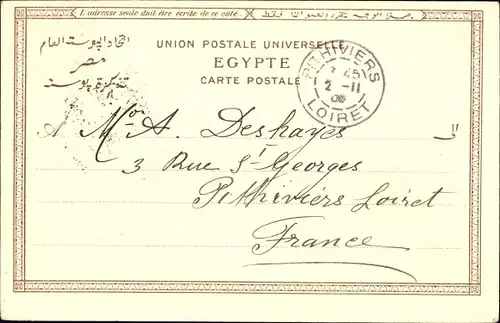 L'adresse seule doit être écrite de ce côté.
اتحاد البوستة العام
مصر
تذكرة بوستة
UNION POSTALE UNIVERSELLE
EGYPTE
CARTE POSTALE
PITHIVIERS
45
2 -11
LOIRET
A Mr A. Deshayes
3 Rue St Georges
Pithiviers Loiret
France